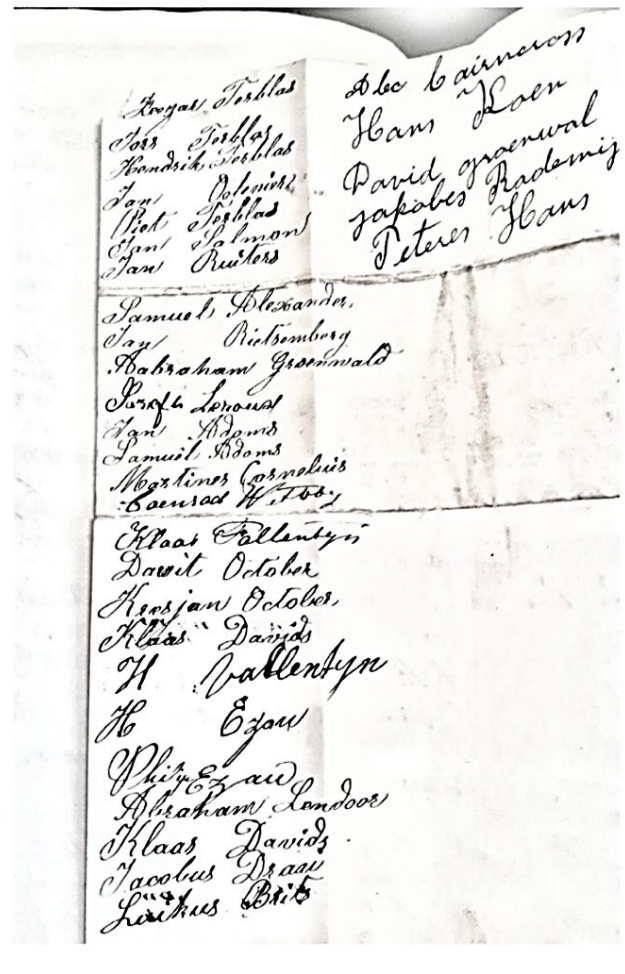 Zoozar Terblas
Jors Terblas
Hendrik Terblas
Jan
Piet Terblas
Jan Salmon
Jan Ruiters
Abe Cairncross
Hans Koen
David groenwal
jakobes Rademij
Peteres Hans
Samuel Alexander
Jan Rietsemberg
Aabraham Groenwald
Josefh Leroux
Jan Adams
Samuel Adams
Martines Cornelius
Coenrad Witboy
Klaas Fallentyn
Dawit October
Kresjan October
Klaas Davids
H Vallentyn
H Ezau
Philip Ezau
Abraham Lendoor
Klaas Davids
Jacobus Draai
Luukus Brits